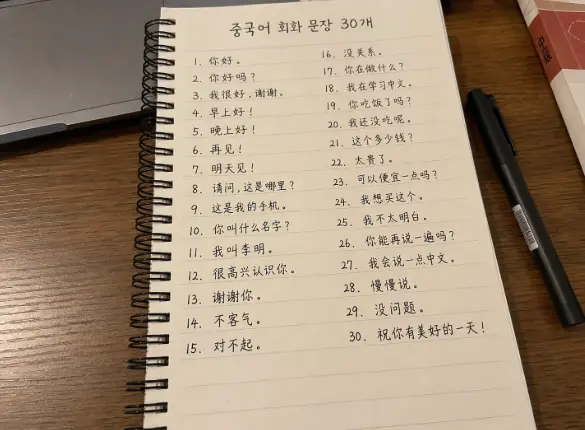 중국어 회화 문장 30개
1. 你好。
2. 你好吗?
3. 我很好，谢谢。
4. 早上好!
5. 晚上好!
6. 再见!
7. 明天见!
8. 请问，这是哪里?
9. 这是我的手机。
10. 你叫什么名字?
11. 我叫李明。
12. 很高兴认识你。
13. 谢谢你。
14. 不客气。
15. 对不起。
16. 没关系。
17. 你在做什么?
18. 我在学习中文。
19. 你吃饭了吗?
20. 我还没吃呢。
21. 这个多少钱?
22. 太贵了。
23. 可以便宜一点吗?
24. 我想买这个。
25. 我不太明白。
26. 你能再说一遍吗?
27. 我会说一点中文。
28. 慢慢说。
29. 没问题。
30. 祝你有美好的一天!